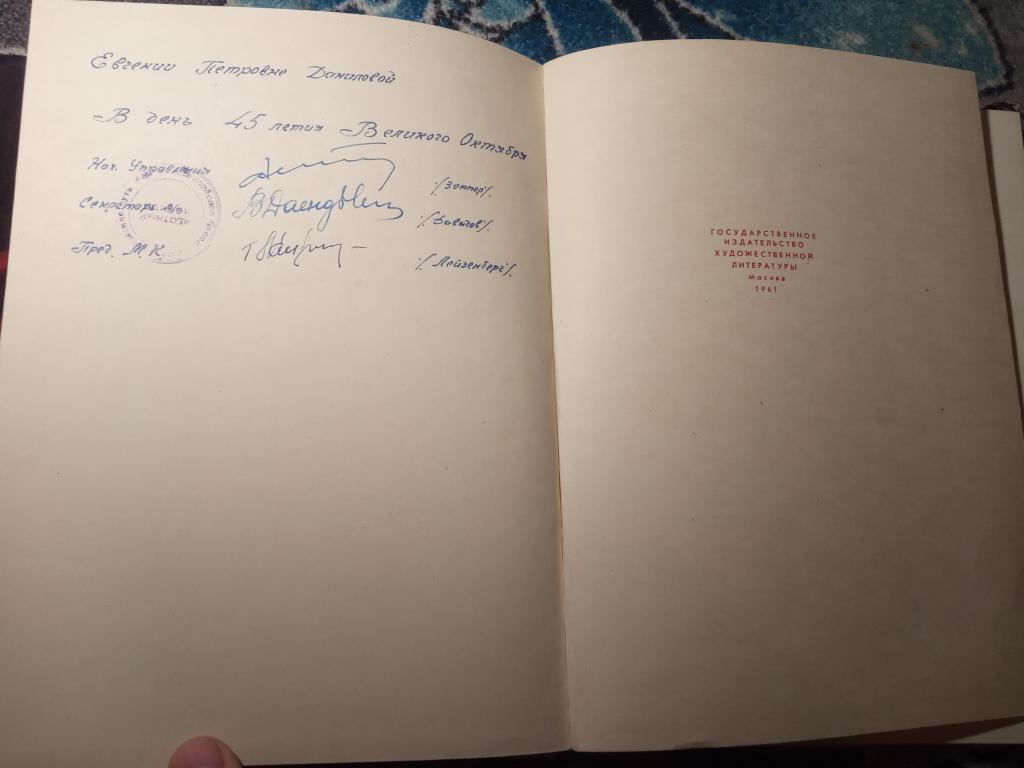 Евгении Петровне Даниловой
В день 45 летия Великого Октября
Нач. Управления
Секретарь п/о
Пред. М.К.
/Лейзенберг/.
ГОСУДАРСТВЕННОЕ
ИЗДАТЕЛЬСТВО
ХУДОЖЕСТВЕННОЙ
ЛИТЕРАТУРЫ
Москва
1961